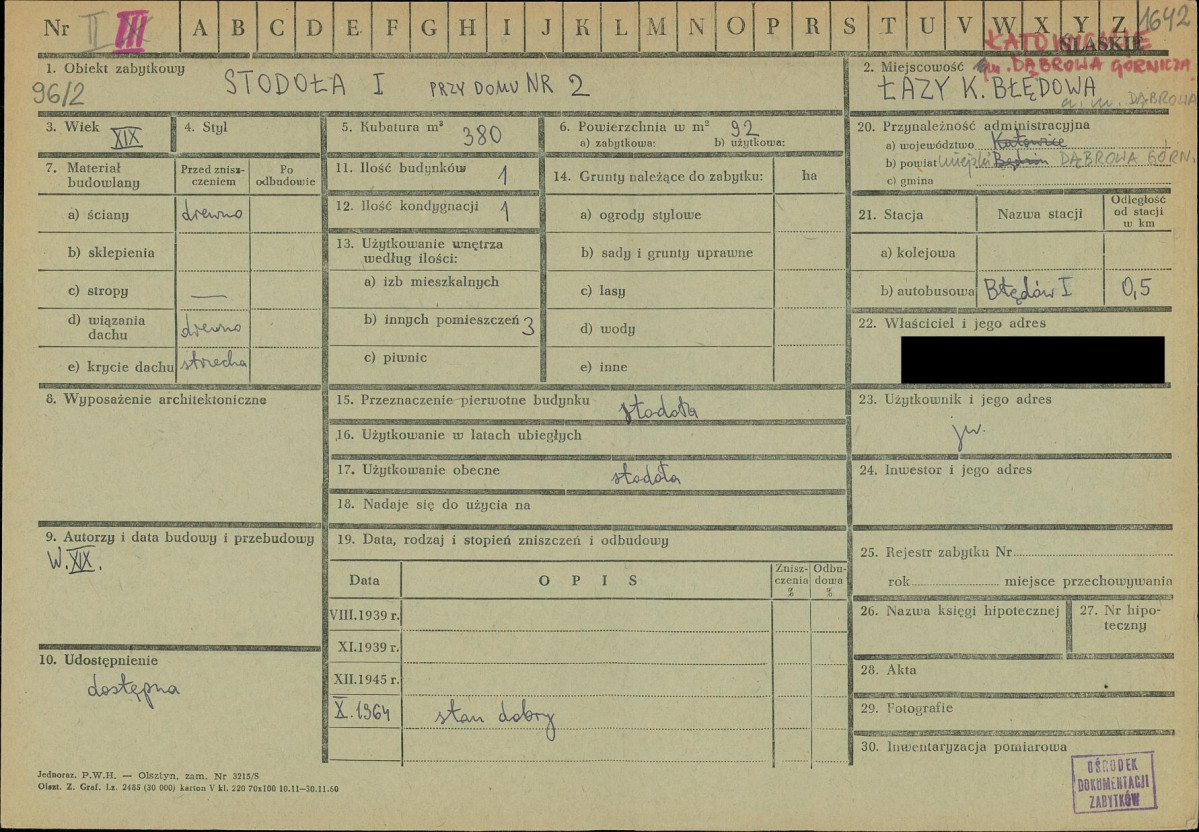 Nr II III A B C D E F G H I J K L M N O P R S T U V W X Y Z 1642
KATOWICKIE
ŚLĄSKIE
gm. DĄBROWA GÓRNICZA
1. Obiekt zabytkowy
96/2
STODOŁA I PRZY DOMU NR 2
2. Miejscowość
ŁAZY K. BŁĘDOWA
DĄBROWA
3. Wiek XIX
4. Styl
5. Kubatura m³ 380
6. Powierzchnia w m² 92
a) zabytkowa: b) użytkowa:
20. Przynależność administracyjna
a) województwo Katowice
b) powiat miejski Będzin DĄBROWA GÓRN.
c) gmina
7. Materiał budowlany
Przed zniszczeniem
Po odbudowie
a) ściany drewno
b) sklepienia
c) stropy —
d) wiązania dachu drewno
e) krycie dachu strzecha
11. Ilość budynków 1
12. Ilość kondygnacji 1
13. Użytkowanie wnętrza
według ilości:
a) izb mieszkalnych
b) innych pomieszczeń 3
c) piwnic
14. Grunty należące do zabytku: ha
a) ogrody stylowe
b) sady i grunty uprawne
c) lasy
d) wody
e) inne
21. Stacja
Nazwa stacji
Odległość od stacji w km
a) kolejowa
b) autobusowa Błędów I 0,5
22. Właściciel i jego adres
8. Wyposażenie architektoniczne
15. Przeznaczenie pierwotne budynku stodoła
16. Użytkowanie w latach ubiegłych
17. Użytkowanie obecne stodoła
18. Nadaje się do użycia na
23. Użytkownik i jego adres
jw.
24. Inwestor i jego adres
9. Autorzy i data budowy i przebudowy
W. XIX.
19. Data, rodzaj i stopień zniszczeń i odbudowy
Data OPIS Zniszczenia % Odbudowa %
VIII.1939 r.
XI.1939 r.
XII.1945 r.
X.1964 stan dobry
25. Rejestr zabytku Nr
rok miejsce przechowywania
26. Nazwa księgi hipotecznej
27. Nr hipoteczny
10. Udostępnienie
dostępna
28. Akta
29. Fotografie
30. Inwentaryzacja pomiarowa
OŚRODEK
DOKUMENTACJI
ZABYTKÓW
Jednoraz. P.W.H. — Olsztyn, zam. Nr 3215/S
Olszt. Z. Graf. Lz. 2455 (30 000) karton V kl. 220 70x100 10.11—30.11.60